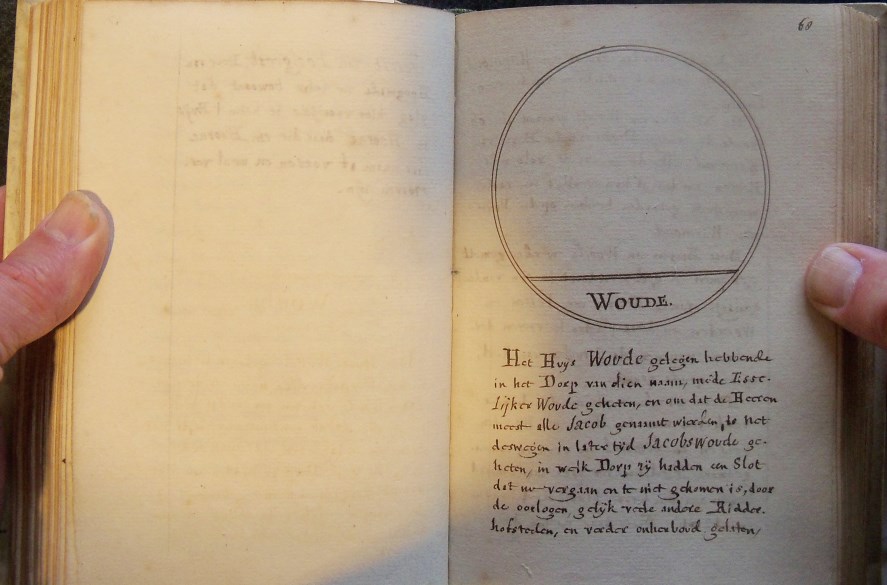 68
WOUDE.
Het Huys Woude gelegen hebbende
in het Dorp van dien naam, mede Esse-
lijker Woude geheten, en om dat de Heeren
meest alle Jacob genaamt wierden, is het
deswegen in later tyd Jacobswoude ge-
heten, in welk Dorp zij hadden een Slot
dat nu vergaan en te niet gekomen is, door
de oorlogen gelyk vele andere Ridder-
hofsteden, en verder onherboud gelaten,